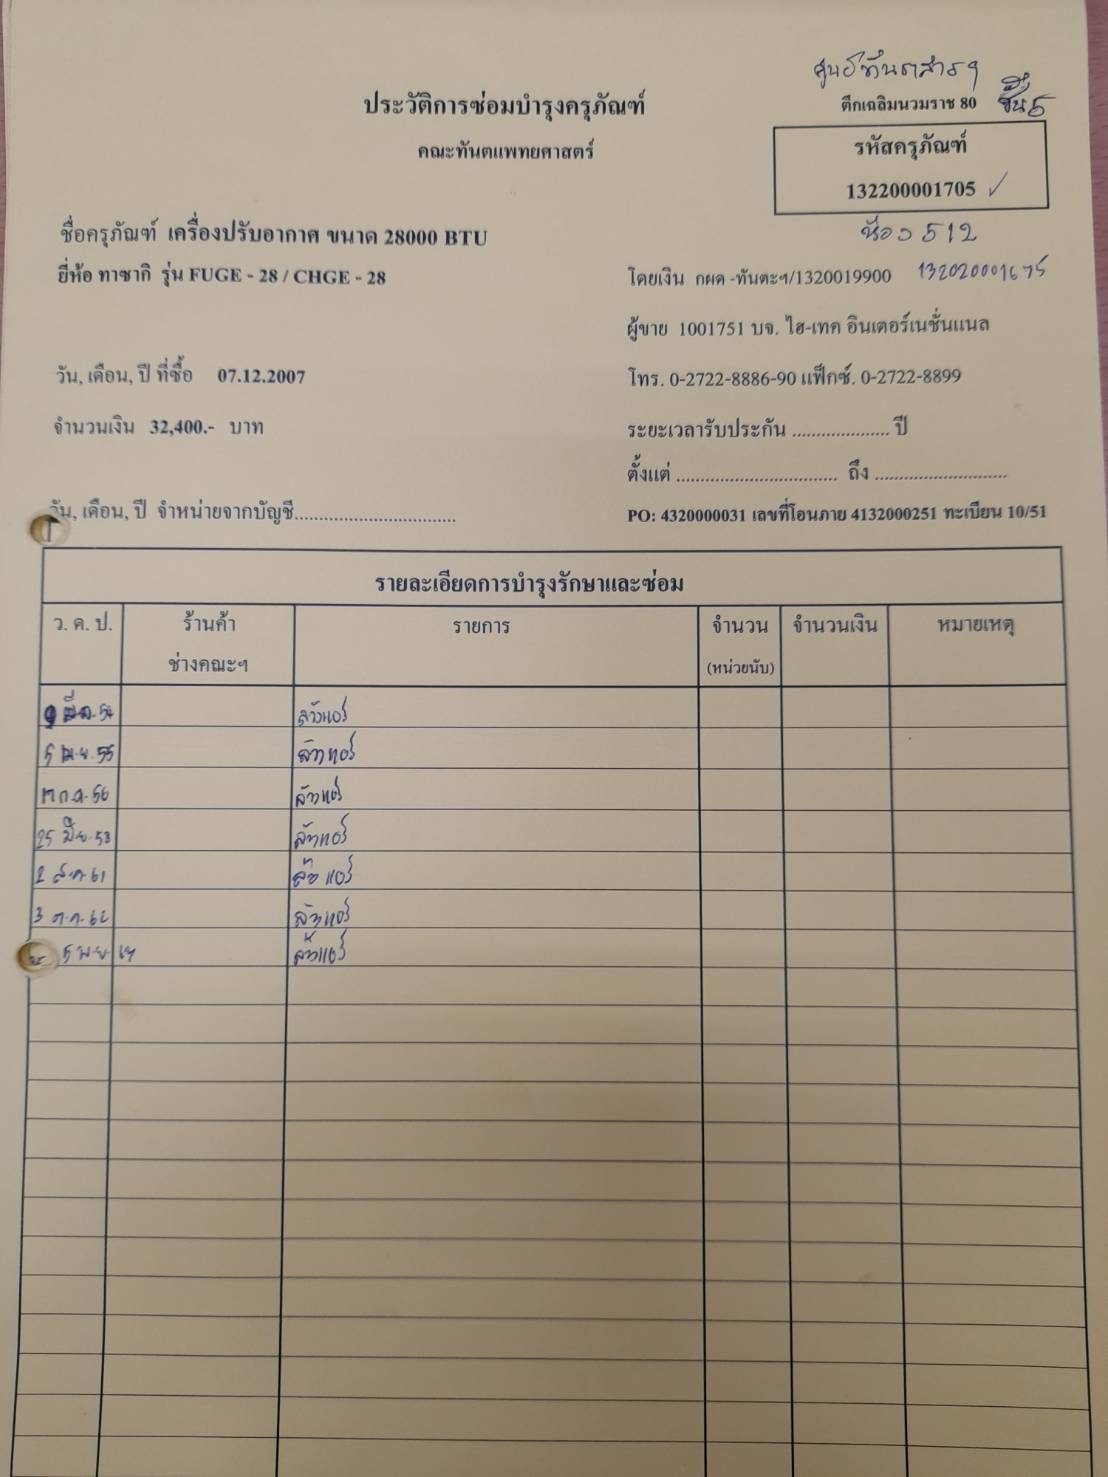 ศูนย์ทันตสารฯ
ประวัติการซ่อมบำรุงครุภัณฑ์
ตึกเฉลิมนวมราช 80 ชั้น 5
คณะทันตแพทยศาสตร์
รหัสครุภัณฑ์
132200001705 ✓
ชื่อครุภัณฑ์ เครื่องปรับอากาศ ขนาด 28000 BTU
ห้อง 512
ยี่ห้อ ทาซากิ รุ่น FUGE - 28 / CHGE - 28
โดยเงิน กผด -ทันตะฯ/1320019900
ผู้ขาย 1001751 บจ. ไฮ-เทค อินเตอร์เนชั่นแนล
วัน, เดือน, ปี ที่ซื้อ 07.12.2007
โทร. 0-2722-8886-90 แฟ็กซ์. 0-2722-8899
จำนวนเงิน 32,400.- บาท
ระยะเวลารับประกัน .................... ปี
ตั้งแต่ ................................. ถึง ...........................
วัน, เดือน, ปี จำหน่ายจากบัญชี.................................
PO: 4320000031 เลขที่โอนภาย 4132000251 ทะเบียน 10/51
รายละเอียดการบำรุงรักษาและซ่อม
ว. ค. ป. ร้านค้า รายการ จำนวน จำนวนเงิน หมายเหตุ
ช่างคณะฯ (หน่วยนับ)
ล้างแอร์
5 เม.ย. 55 ล้างแอร์
ก.ค. 56 ล้างแอร์
25 มิ.ย. 58 ล้างแอร์
2 ส.ค. 61 ล้างแอร์
3 ต.ค. 62 ล้างแอร์
5 พ.ย. ล้างแอร์